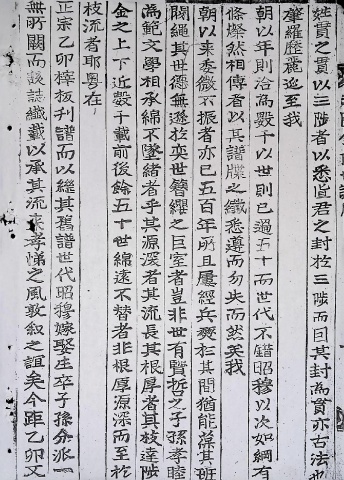 姓貫之貫以三陟者以悉直君之封於三陟而因其封為貫亦古法也
肇羅歷麗迄至我
朝以年則洽為數千以世則已過五十而世代不錯昭穆以次如綱有
條燦然相傳者以其譜牒之纖悉遵而勿失而然矣我
朝以來委微不振者亦已五百年所且屢經兵燹於其間猶能葆其班
閥繩其世德無遜於奕世簪纓之巨室者豈非世有賢哲之子孫孝睦
為範文學相承綿不墜緒者乎其源深者其流長其根厚者其枝達陟
金之上下近數千載前後餘五十世綿遠不替者非根厚源深而至於
枝流者耶粤在
正宗乙卯梓板刊譜而以繼其舊譜世代昭穆嫁娶生卒子孫分派一
無所闕而後誌纖纖以承其流來孝悌之風敦叙之誼矣今距乙卯又